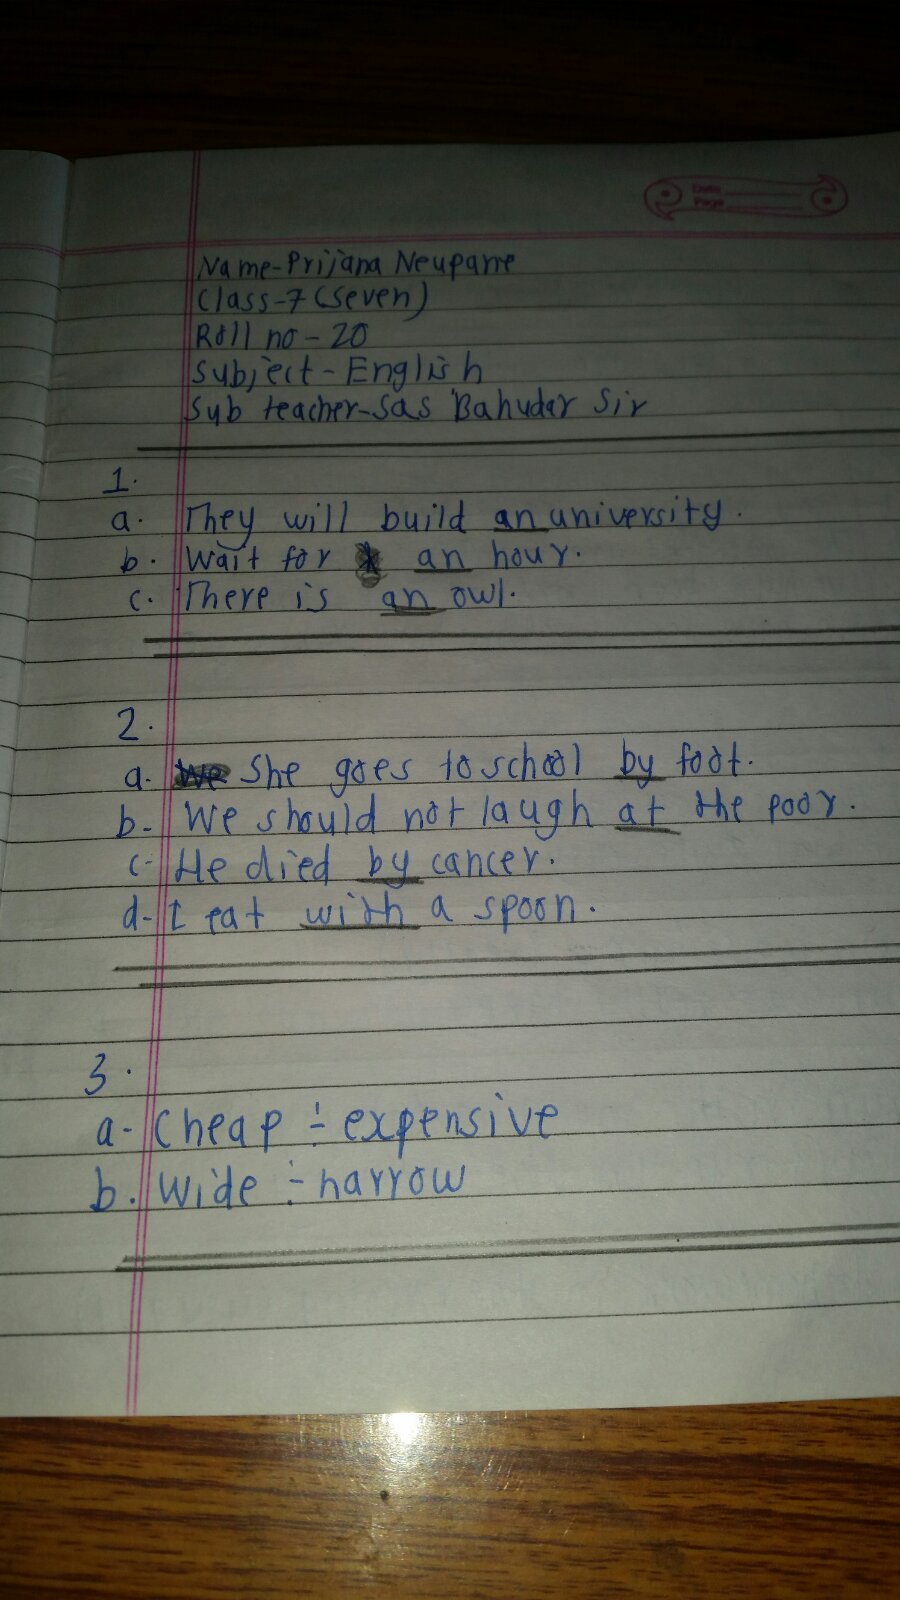 Date
Page
Name-Prijana Neupane
Class-7 (seven)
Roll no - 20
Subject - English
Sub teacher-Sas Bahudar Sir
1.
a. They will build an university.
b. Wait for an hour.
c. There is an owl.
2.
a. She goes to school by foot.
b- We should not laugh at the poor.
c- He died by cancer.
d- I eat with a spoon.
3.
a- Cheap ÷ expensive
b. Wide ÷ narrow